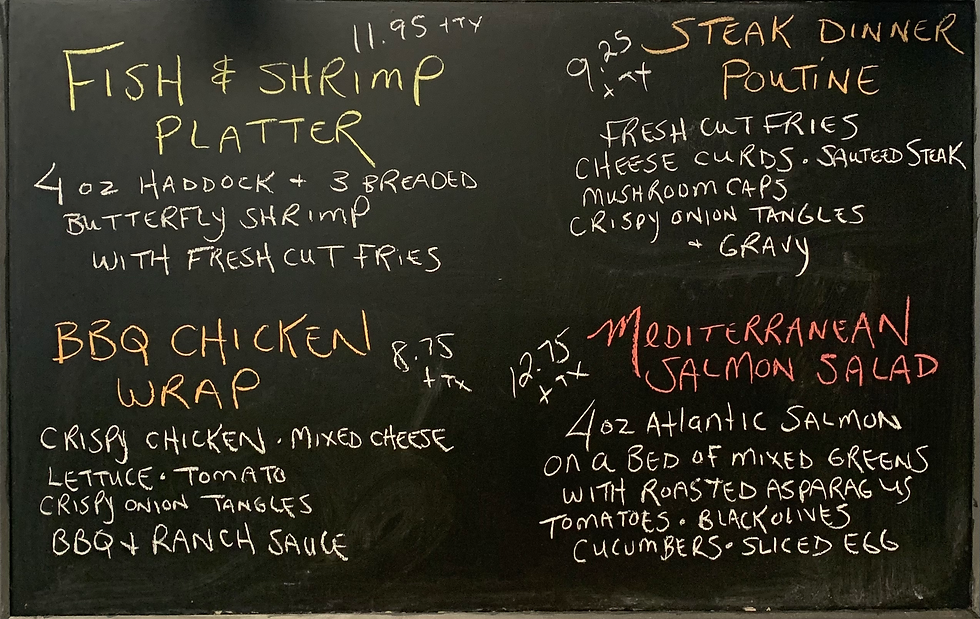 11.95 +TX
FISH & SHRIMP
PLATTER
4 oz HADDOCK + 3 BREADED
BUTTERFLY SHRIMP
WITH FRESH CUT FRIES
9.25
+TX
STEAK DINNER
POUTINE
FRESH CUT FRIES
CHEESE CURDS · SAUTEED STEAK
MUSHROOM CAPS
CRISPY ONION TANGLES
+ GRAVY
BBQ CHICKEN
WRAP
8.75
+TX
CRISPY CHICKEN · MIXED CHEESE
LETTUCE · TOMATO
CRISPY ONION TANGLES
BBQ + RANCH SAUCE
12.75
+TX
MEDITERRANEAN
SALMON SALAD
4oz Atlantic SALMON
ON a BED OF MIXED GREENS
WITH ROASTED ASPARAGUS
TOMATOES · BLACK OLIVES
CUCUMBERS · SLICED EGG